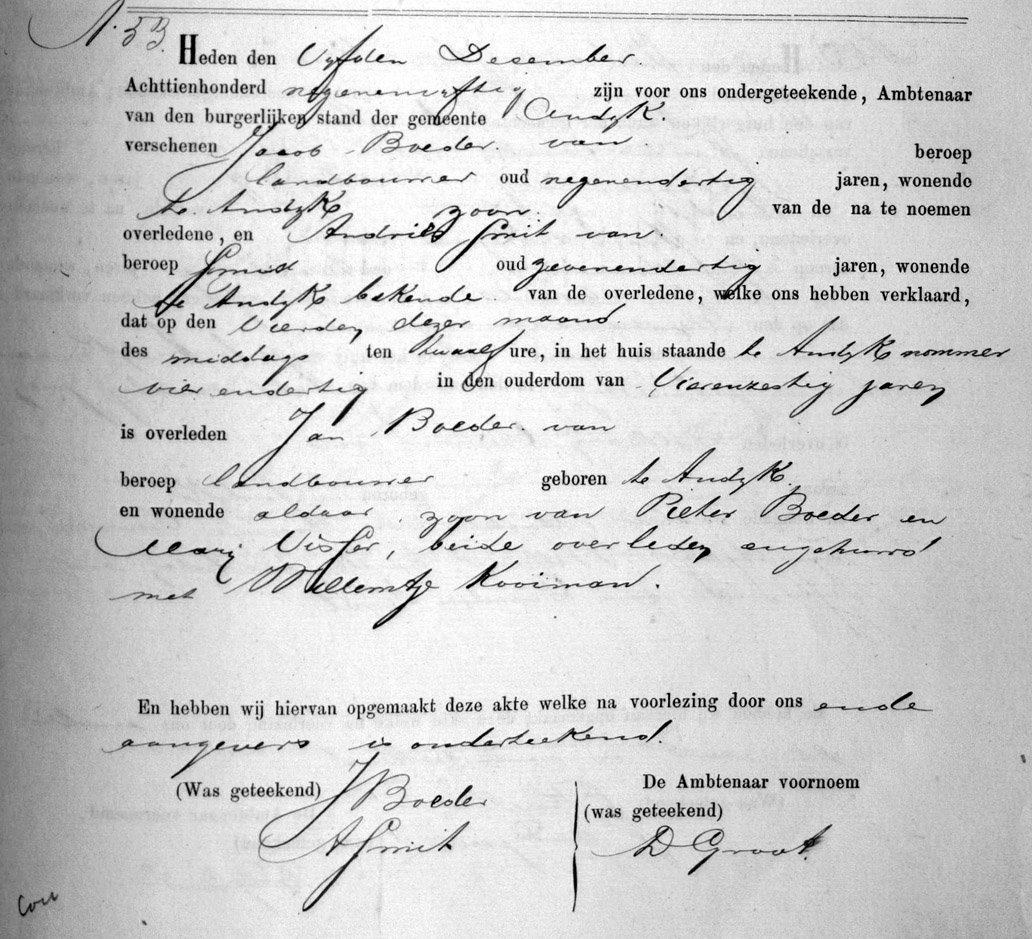 N. 53
Heden den Vyfden December
Achttienhonderd negenenvyftig zijn voor ons ondergeteekende, Ambtenaar
van den burgerlijken stand der gemeente Andyk.
verschenen Jacob Boeder van beroep
landbouwer oud negenendertig jaren, wonende
te Andyk zoon van de na te noemen
overledene, en Andries Smit van
beroep Smid oud zevenendertig jaren, wonende
te Andyk bekende van de overledene, welke ons hebben verklaard,
dat op den Vierden dezer maand
des middags ten twaalf ure, in het huis staande te Andyk nommer
vier endertig in den ouderdom van Vierenzestig jaren
is overleden Jan Boeder van
beroep landbouwer geboren te Andyk.
en wonende aldaar zoon van Pieter Boeder en
Marij Visser, beide overleden, angehuwd
met Willemtje Kooiman.
En hebben wij hiervan opgemaakt deze akte welke na voorlezing door ons ende
aangevers is onderteekend.
(Was geteekend) J Boeder
A Smit
De Ambtenaar voornoem
(was geteekend)
D Groot.